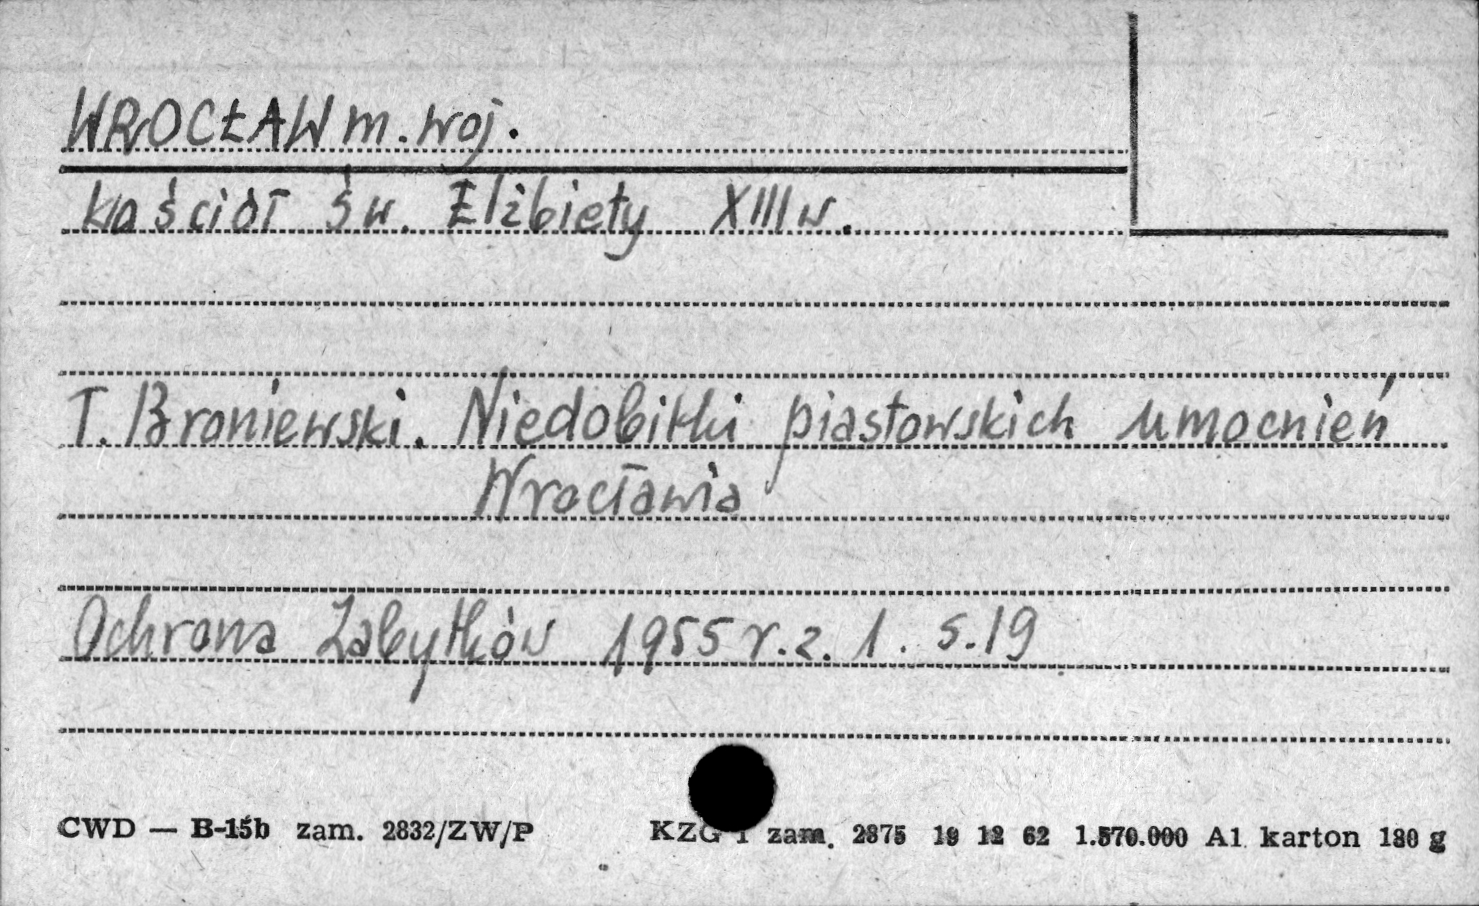 WROCŁAW m. woj.
kościół św. Elżbiety XIII w.
T. Broniewski. Niedobitki piastowskich umocnień
Wrocławia
Ochrona Zabytków 1955 r. z. 1. s. 19
CWD — B-15b zam. 2832/ZW/P KZG 1 zam. 2875 19 12 62 1.570.000 A1 karton 180 g